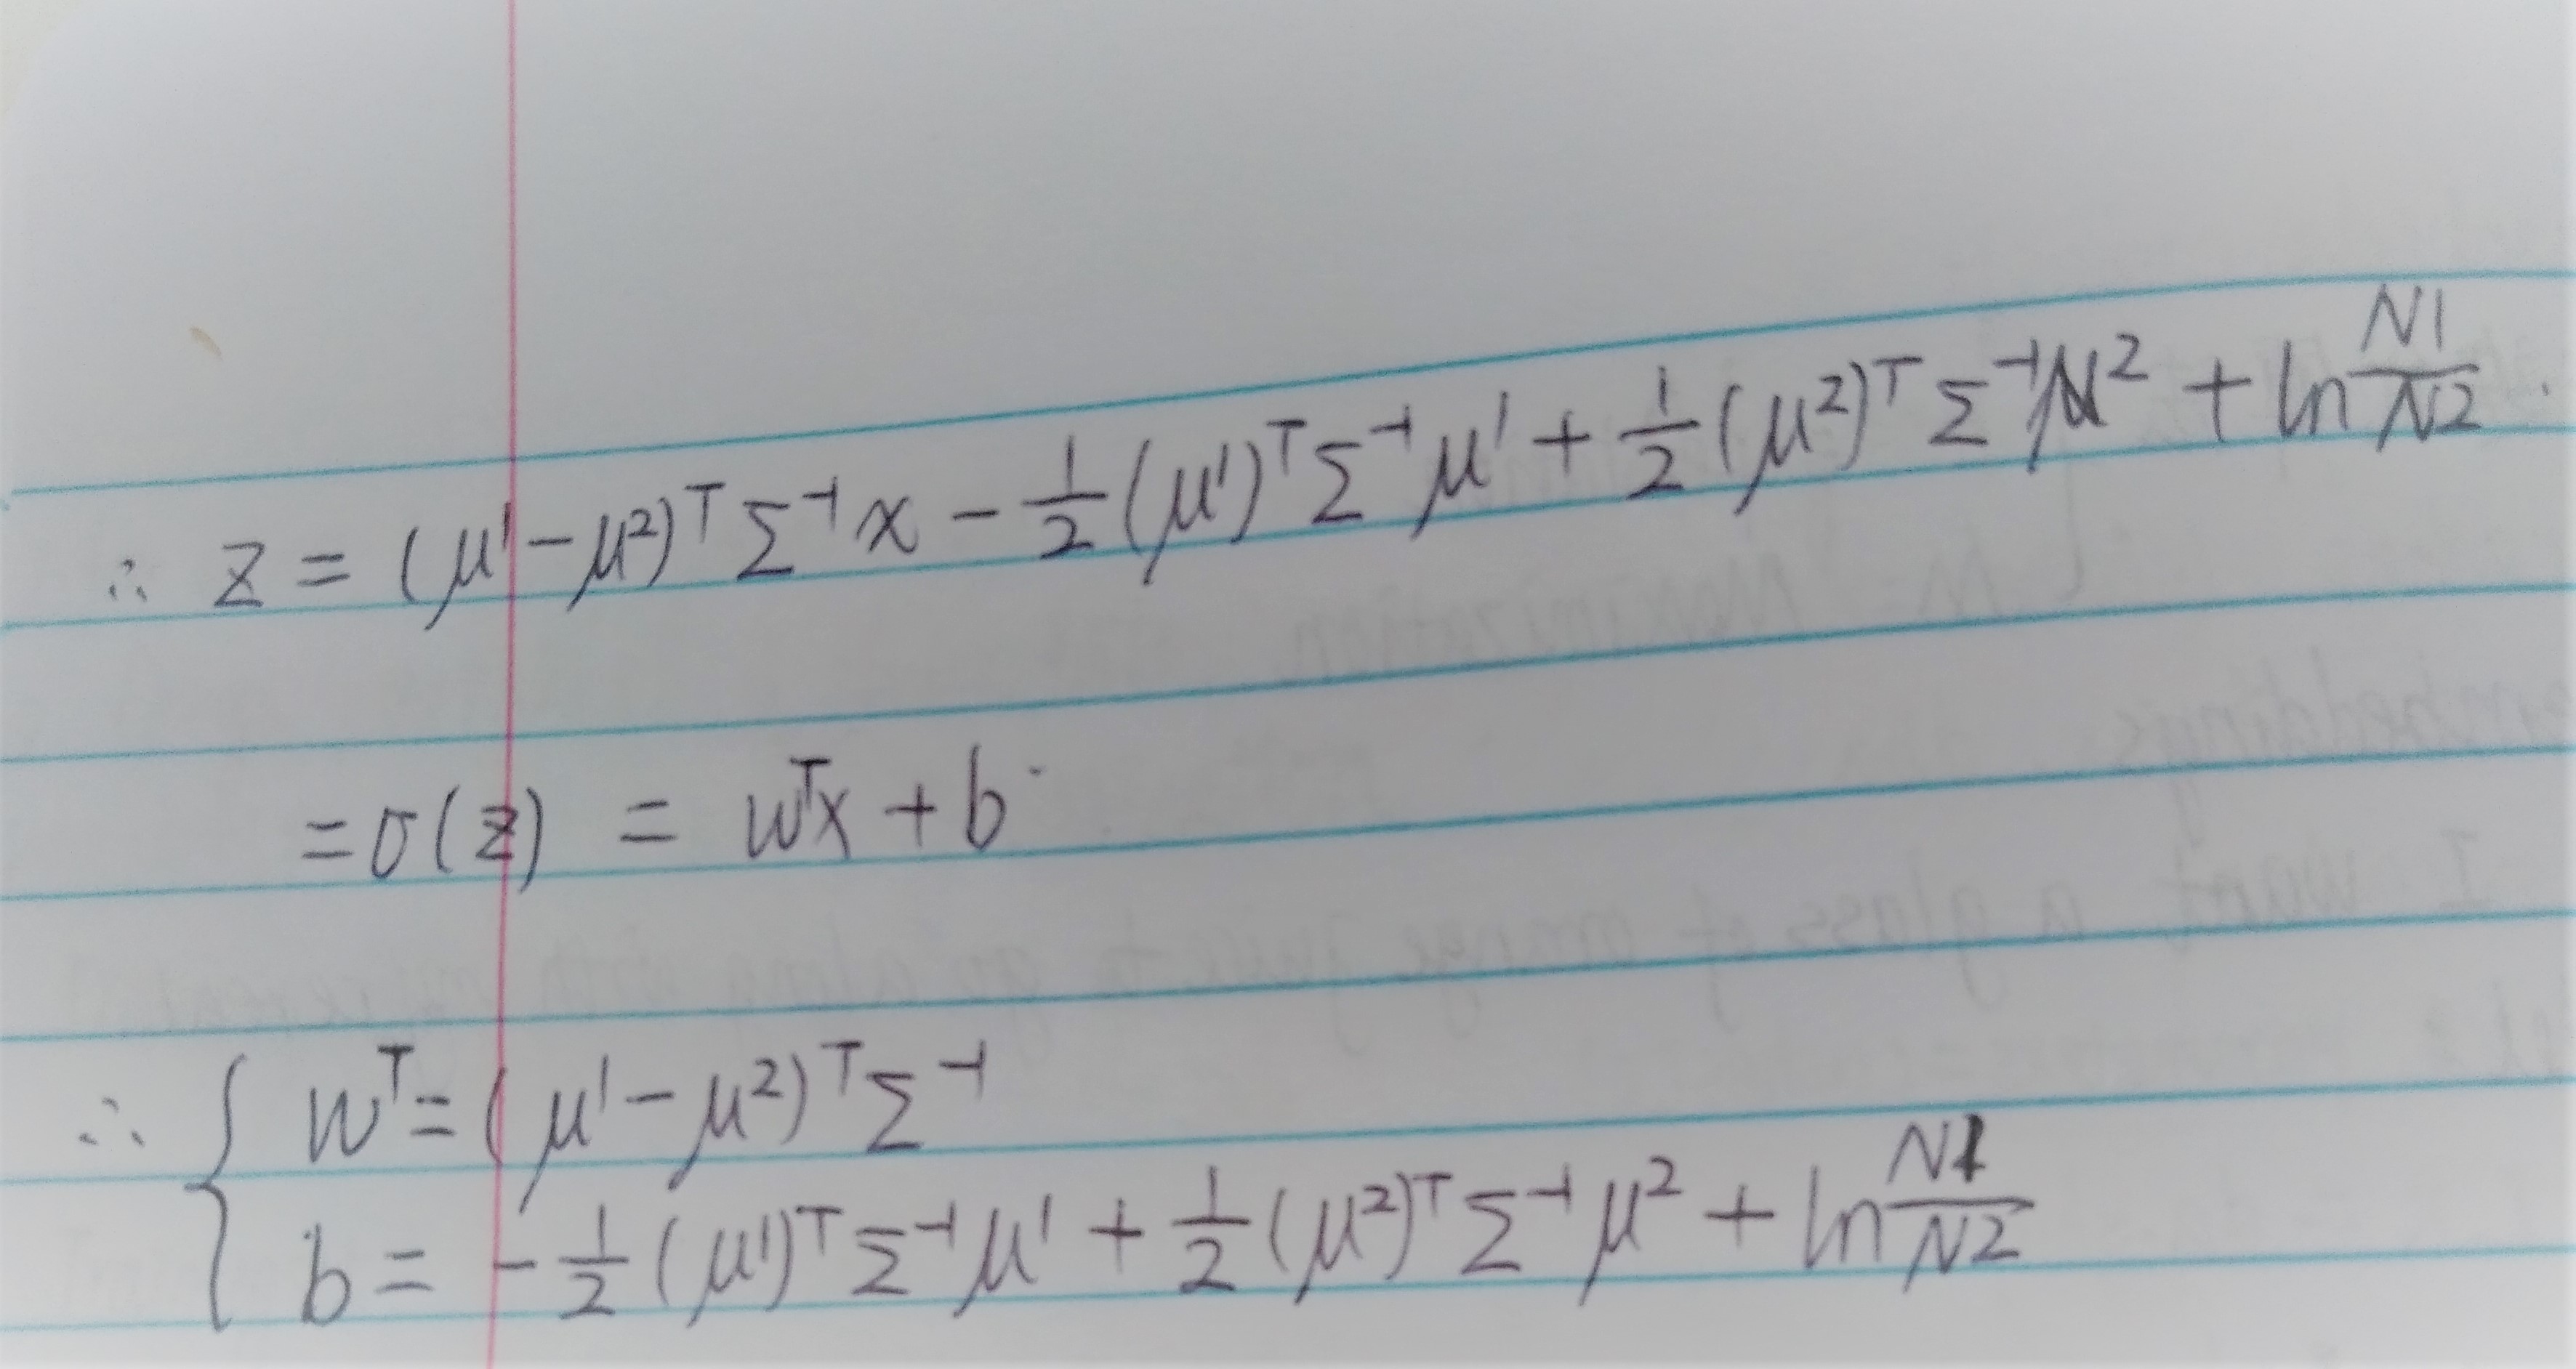 ∴ z = (μ¹ - μ²)ᵀ Σ⁻¹ x - 1/2 (μ¹)ᵀ Σ⁻¹ μ¹ + 1/2 (μ²)ᵀ Σ⁻¹ μ² + ln N1/N2 .
= σ(z) = wᵀx + b
∴ { wᵀ = (μ¹ - μ²)ᵀ Σ⁻¹
b = - 1/2 (μ¹)ᵀ Σ⁻¹ μ¹ + 1/2 (μ²)ᵀ Σ⁻¹ μ² + ln N1/N2